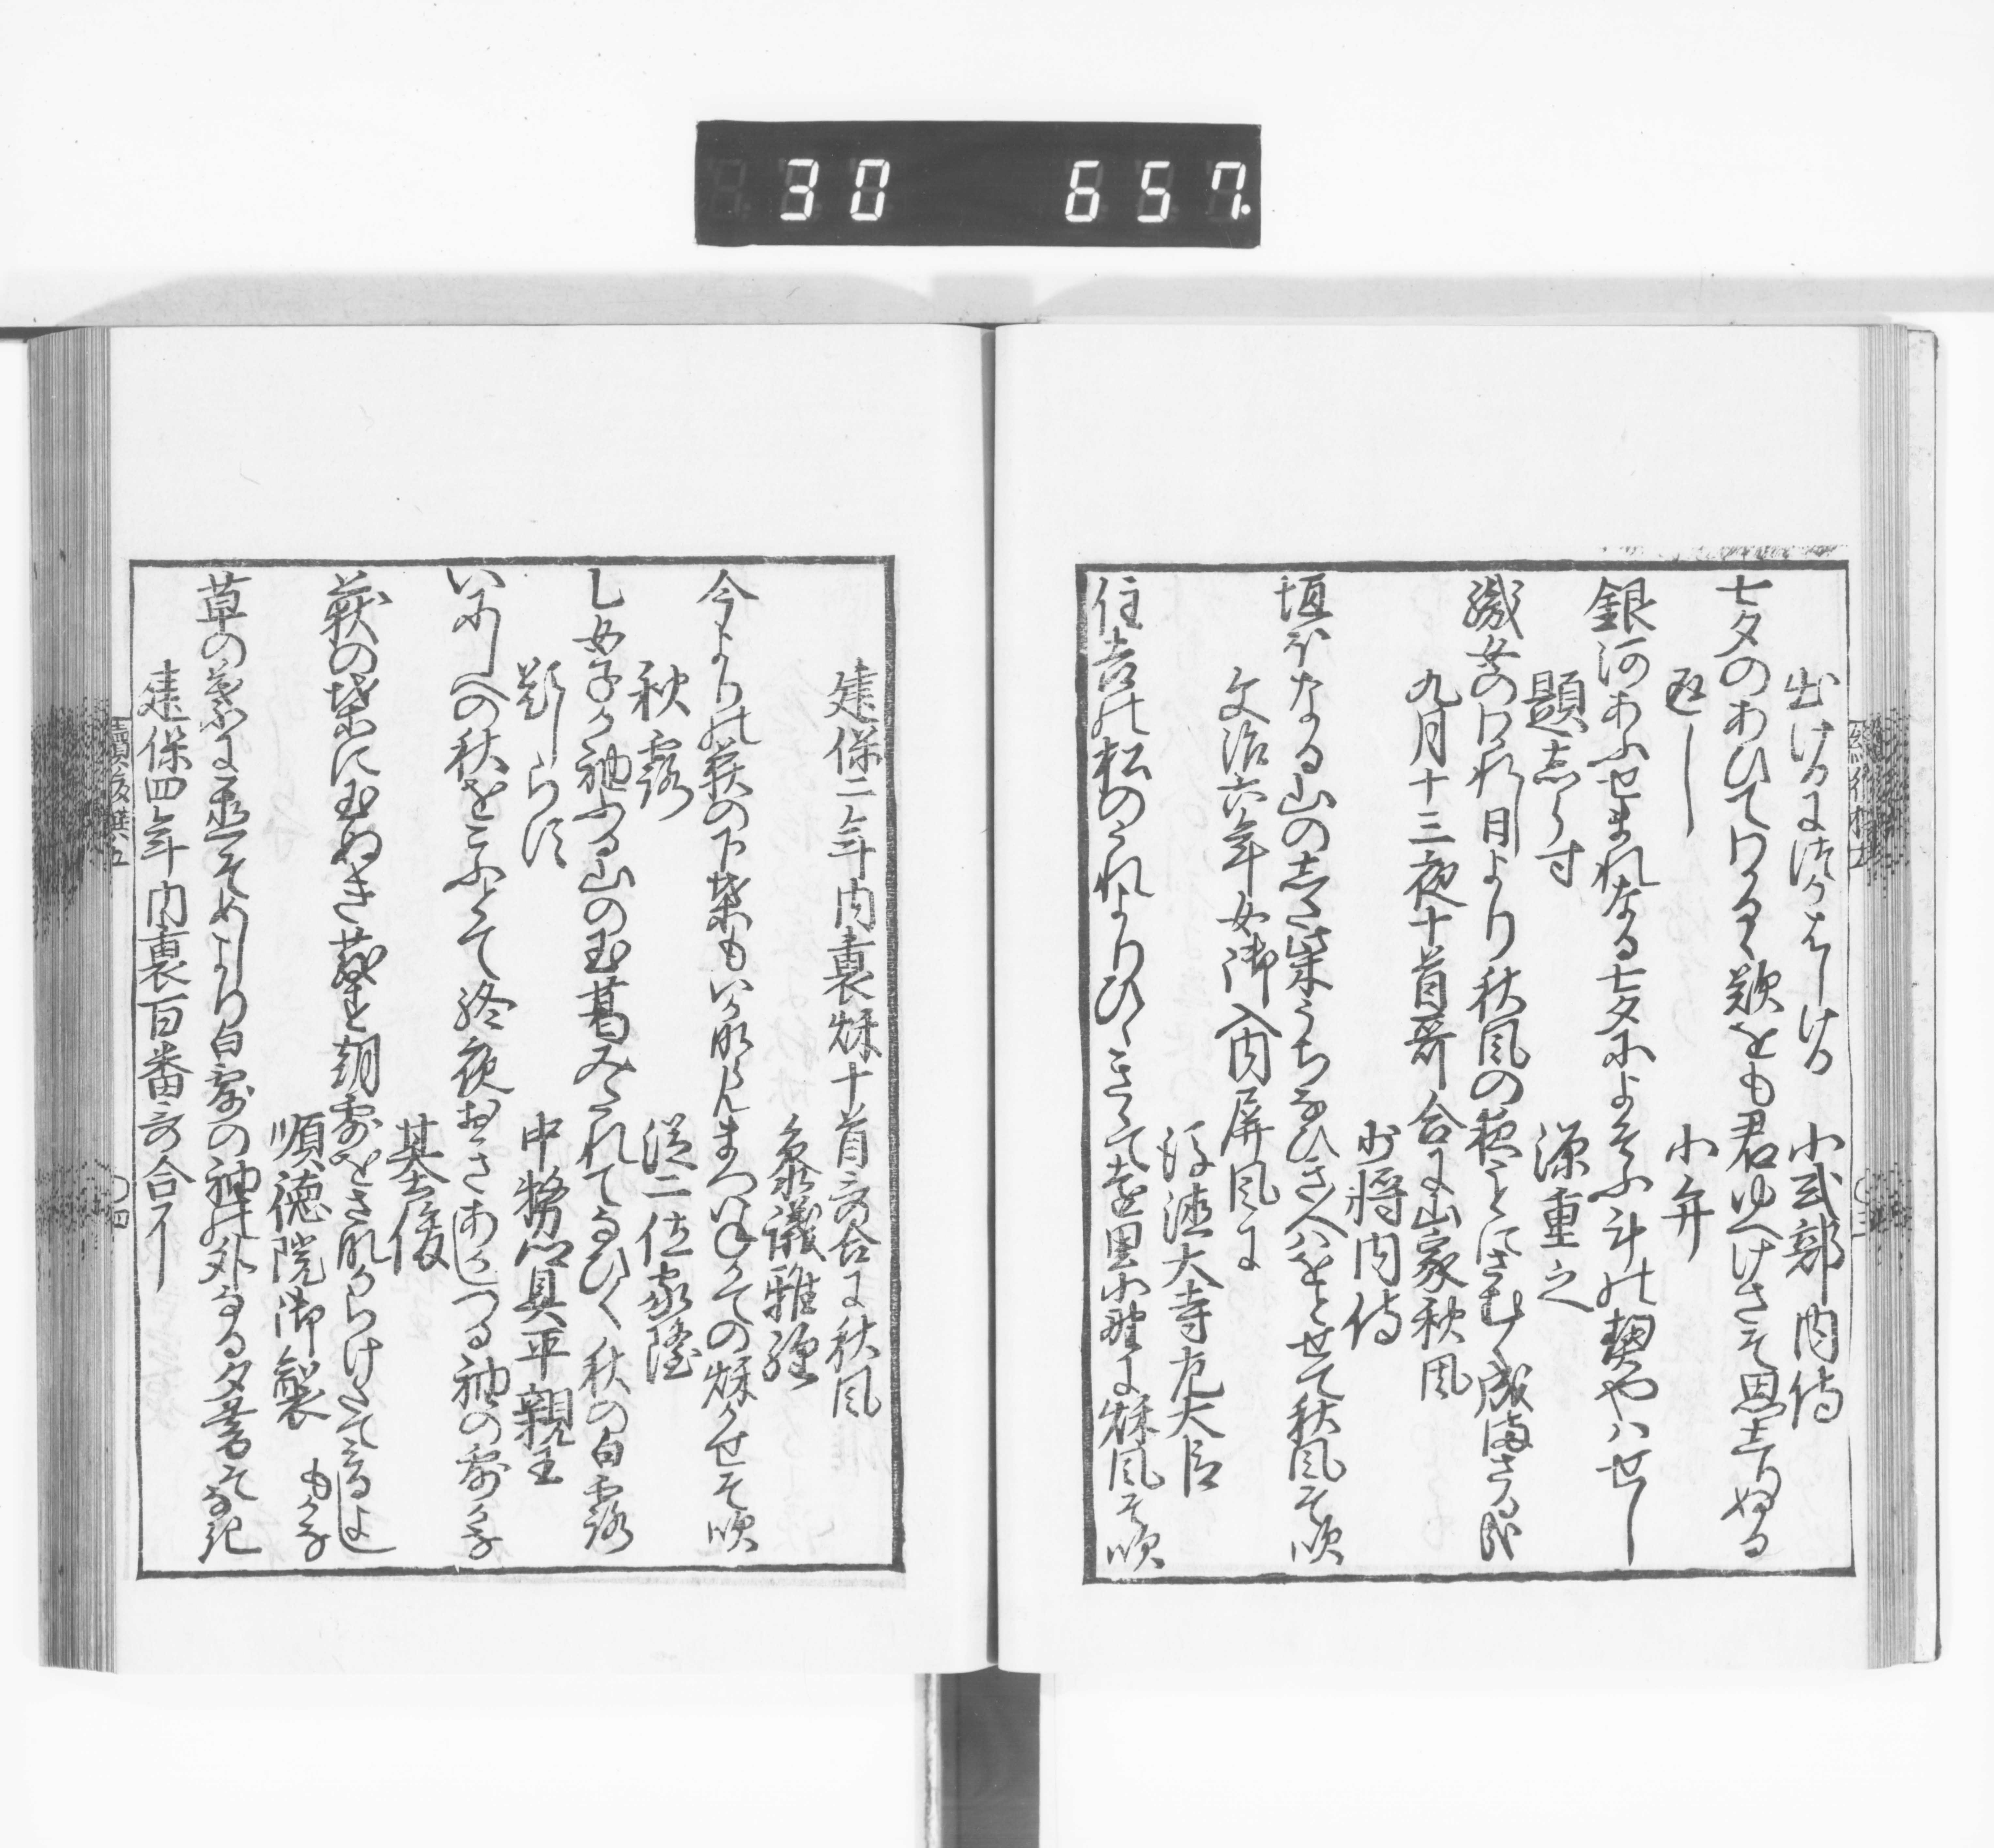 30 657.
出けるにつかはしける 小式部内侍
七夕のあひてわかるゝ歎をも君ゆへけさそ思しりぬる
返し 小弁
銀河あふせまれなる七夕によそふ斗の契やはせし
題志らす 源重之
織女のわかれし日より秋風の夜ことにさむく成まさる哉
九月十三夜十首哥合に山家秋風
少将内侍
垣ほなる山の志た柴うちなひきへをとせて秋風そ吹
文治六年女御入内屏風に
後徳大寺左大臣
住吉の松のうれよりひゝきゝて遠里小野に秋風そ吹
建保二年内裏秋十首哥合に秋風
参議雅経
今よりの萩の下葉もいかならんまついねかての秋かせそ吹
秋露 従二位家隆
乙女子か袖ふる山の玉葛みたれてなひく秋の白露
題しらす 中務卿具平親王
いにしへの秋をこふとて終夜おきあかしつる袖の露かな
基俊
萩の葉に玉ぬき
順徳院御製
草の葉にをきそめしより白露の袖の外なる夕暮そなき
建保四年内裏百番哥合に
續後撰五